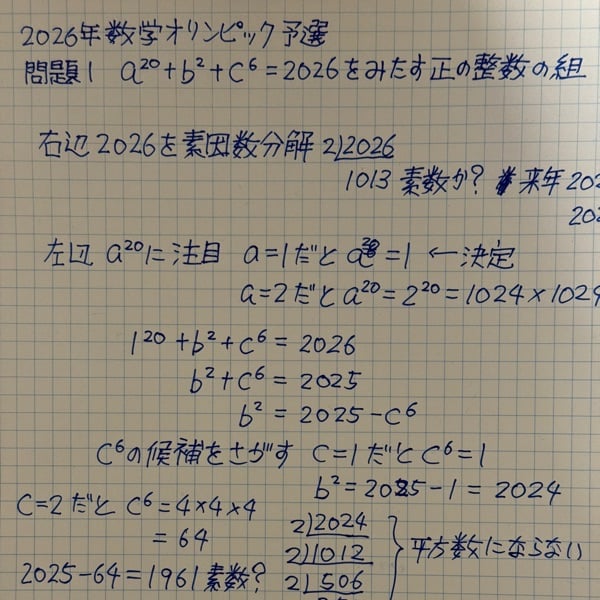 2026年数学オリンピック予選
問題1 a²⁰+b²+c⁶=2026をみたす正の整数の組
右辺2026を素因数分解 2)2026
1013 素数か? 来年202
202
左辺 a²⁰に注目 a=1だと a²⁰=1 ←決定
a=2だと a²⁰=2²⁰=1024×1024
1²⁰+b²+c⁶=2026
b²+c⁶=2025
b²=2025-c⁶
C⁶の候補をさがす C=1だとC⁶=1
b²=2025-1=2024
C=2だと C⁶=4×4×4
=64
2025-64=1961素数?
2)2024
2)1012
2)506
平方数にならない